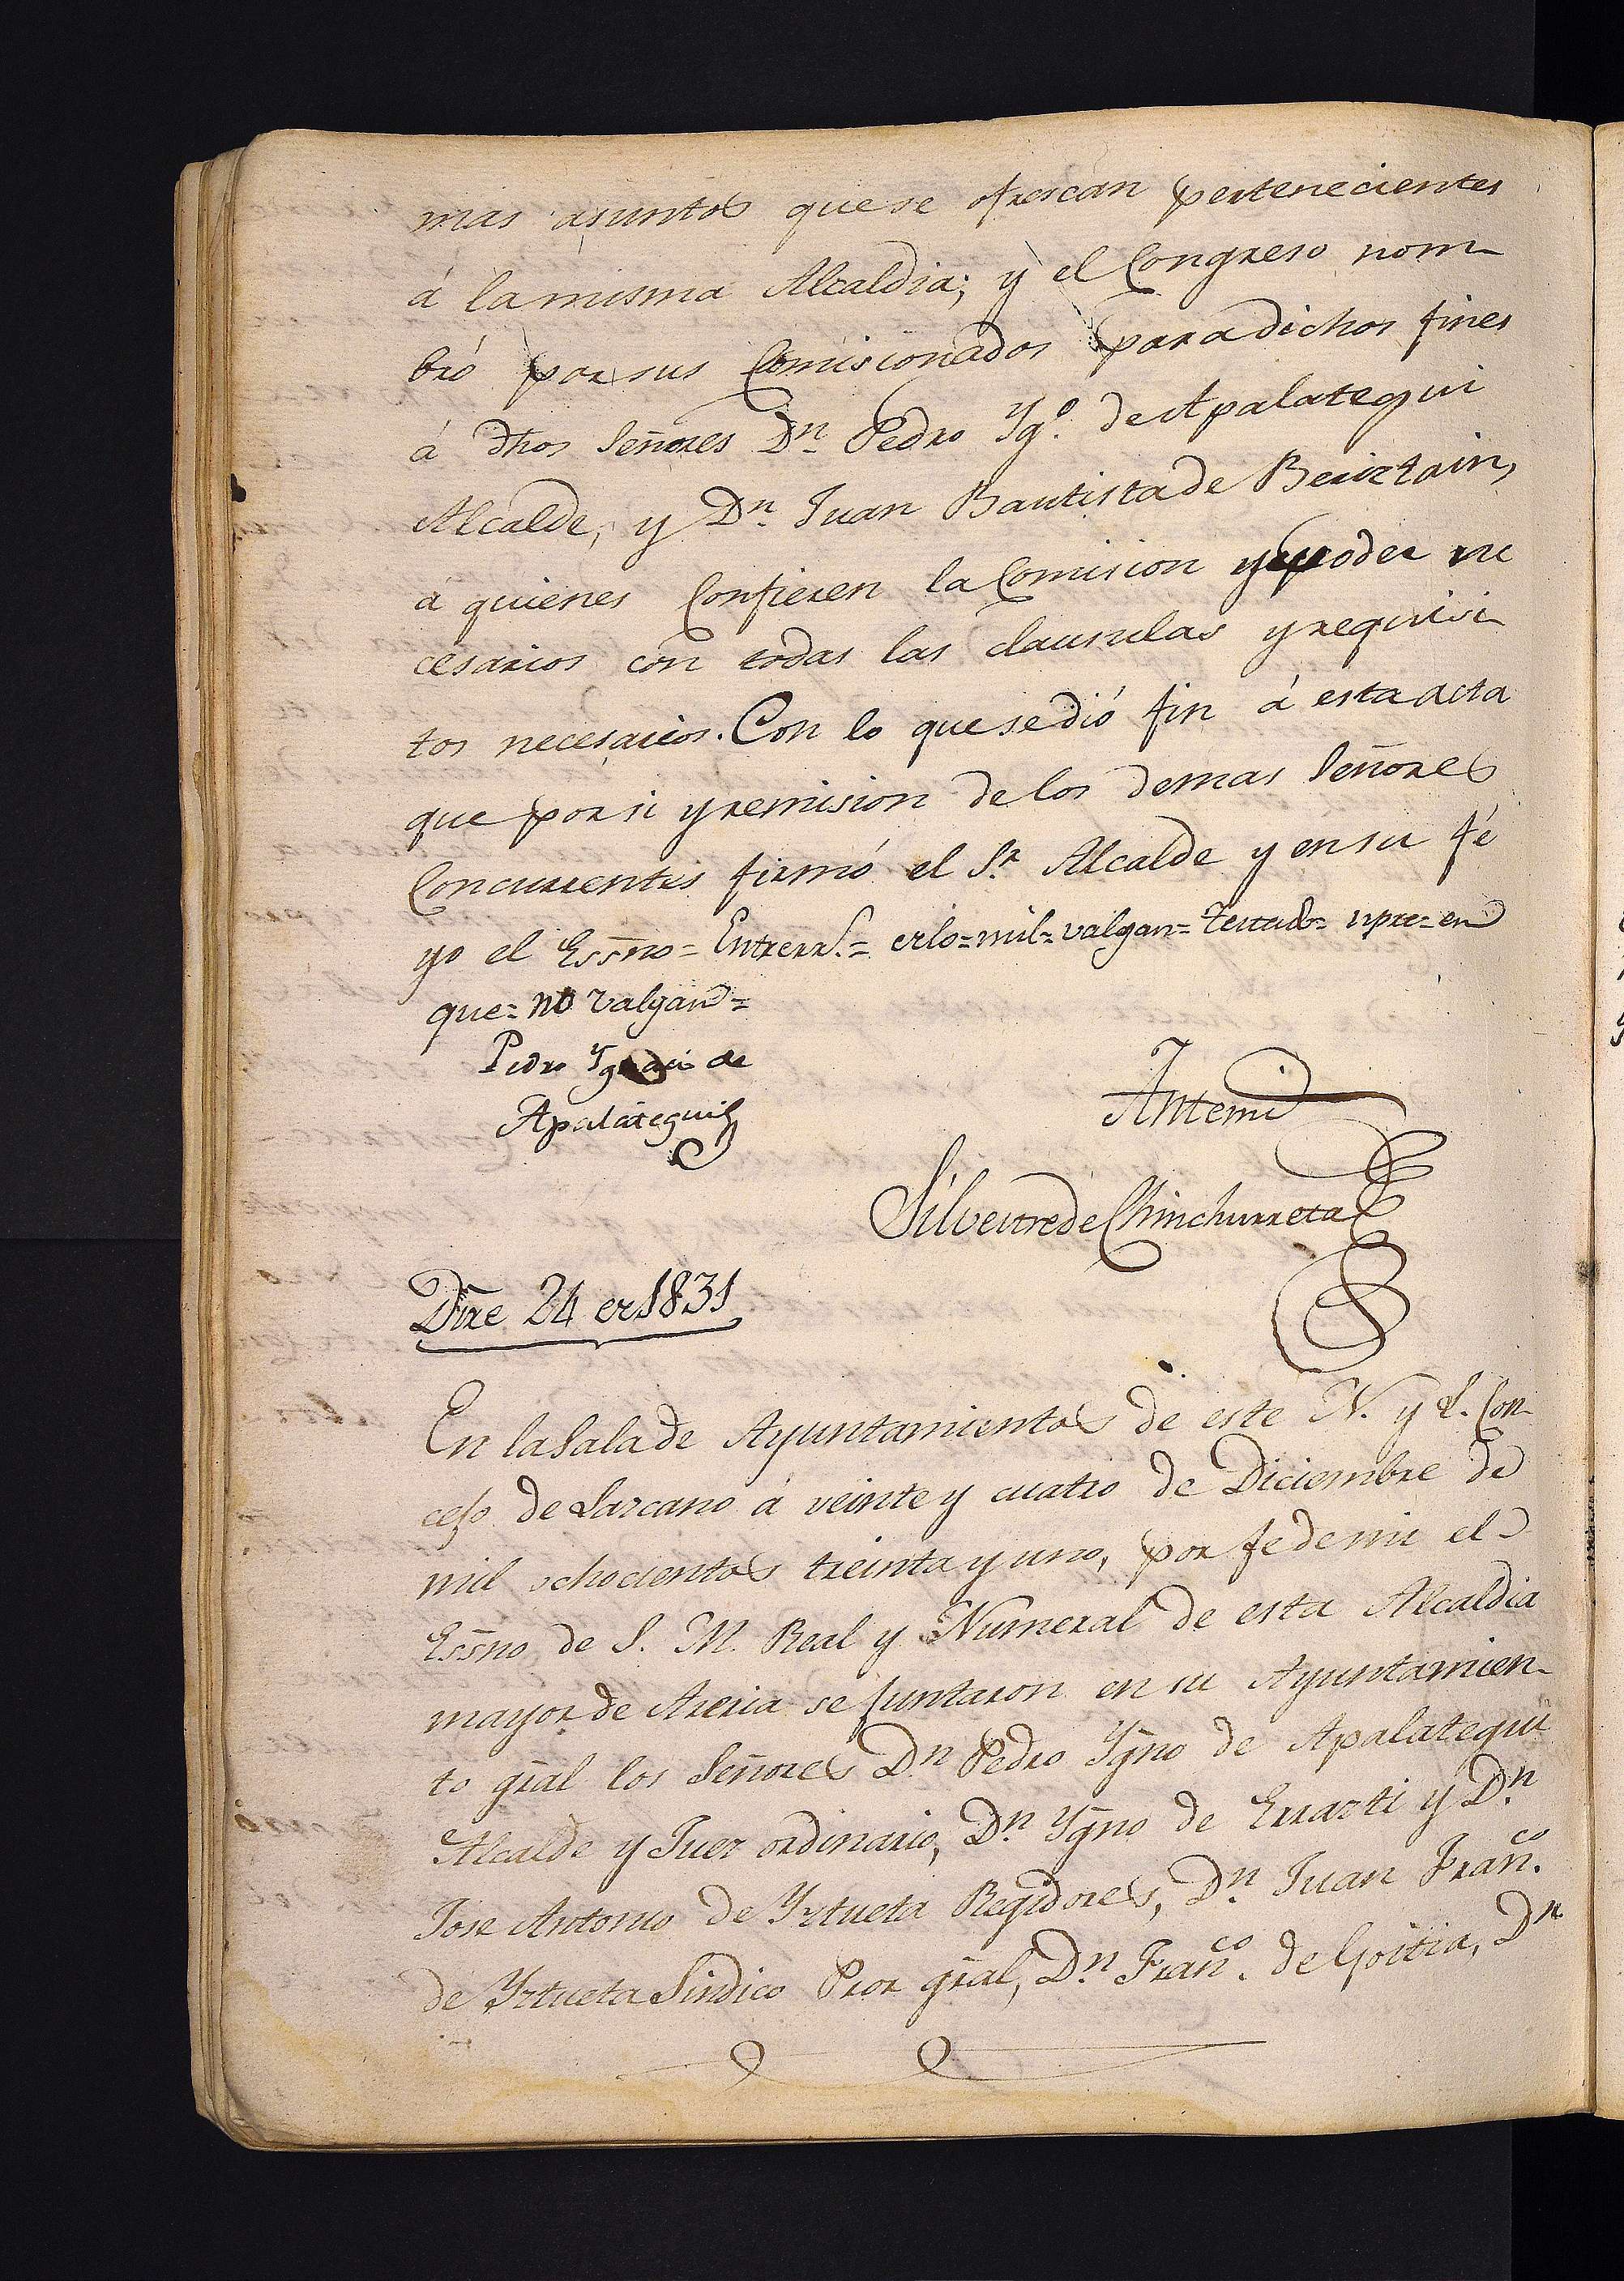 mas asuntos que se ofrescan pertenecientes
á la misma Alcaldia; y el Congreso nom-
bró por sus Comisionados para dichos fines
á dhos Señores Dn. Pedro Ygo. de Apalategui
Alcalde, y Dn. Juan Bautista de Beriztain,
á quienes Confieren la Comision y poder ne
cesarios con todas las clausulas y requisi-
tos necesarios. Con lo que se dió fin á esta acta
que por si y remision de los demas Señores
Concurrentes firmó el Sr. Alcalde y en su fé
yo el Essno = Entrerrs. = erlo = mil = valgan = Testado = = en
que = no valgan =
Pedro Ygnacio de
Apalategui
Antemi
Silvestre de Chinchurreta
Dre 24 er 1831
En la Sala de Ayuntamientos de este N. y L. Con-
cejo de Lazcano á veinte y cuatro de Diciembre de
mil ochocientos treinta y uno, por fe de mi el
Essno de S. M. Real y Numeral de esta Alcaldia
mayor de Areria se juntaron en su Ayuntamien-
to gral los Señores Dn Pedro Ygno de Apalategui
Alcalde y Juez ordinario, Dn. Ygno de Errazti y Dn
Jose Antonio de Yztueta Regidores, Dn. Juan Franco.
de Yztueta Sindico Pror gral, Dn. Franco. de Goitia, Dn